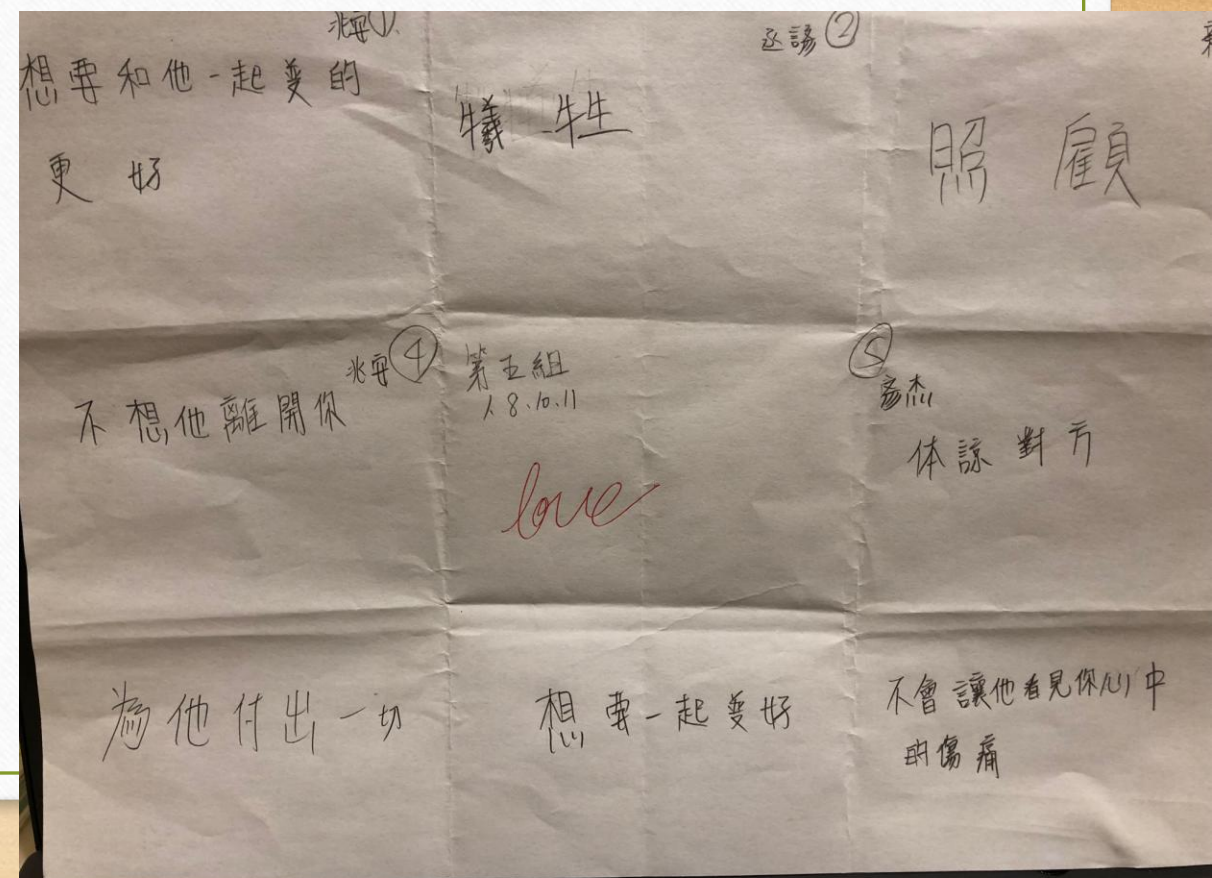 兆安①
想要和他一起変的
更好
丞諺②
犧牲
照顧
兆安④
不想他離開你
第五組
18.10.11
love
⑤
彥杰
体諒對方
為他付出一切
想要一起変好
不會讓他看見你心中
的傷痛